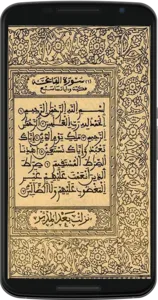 (١) سورة الفاتحة
مكية وآياتها سبع
بسم الله الرحمن الرحيم
الحمد لله رب العلمين الرحمن
الرحيم ملك يوم الدين إياك
نعبد وإياك نستعين اهدنا
الصراط المستقيم صراط
الذين أنعمت عليهم غير
المغضوب عليهم ولا الضالين
نزلت بعد المدثر